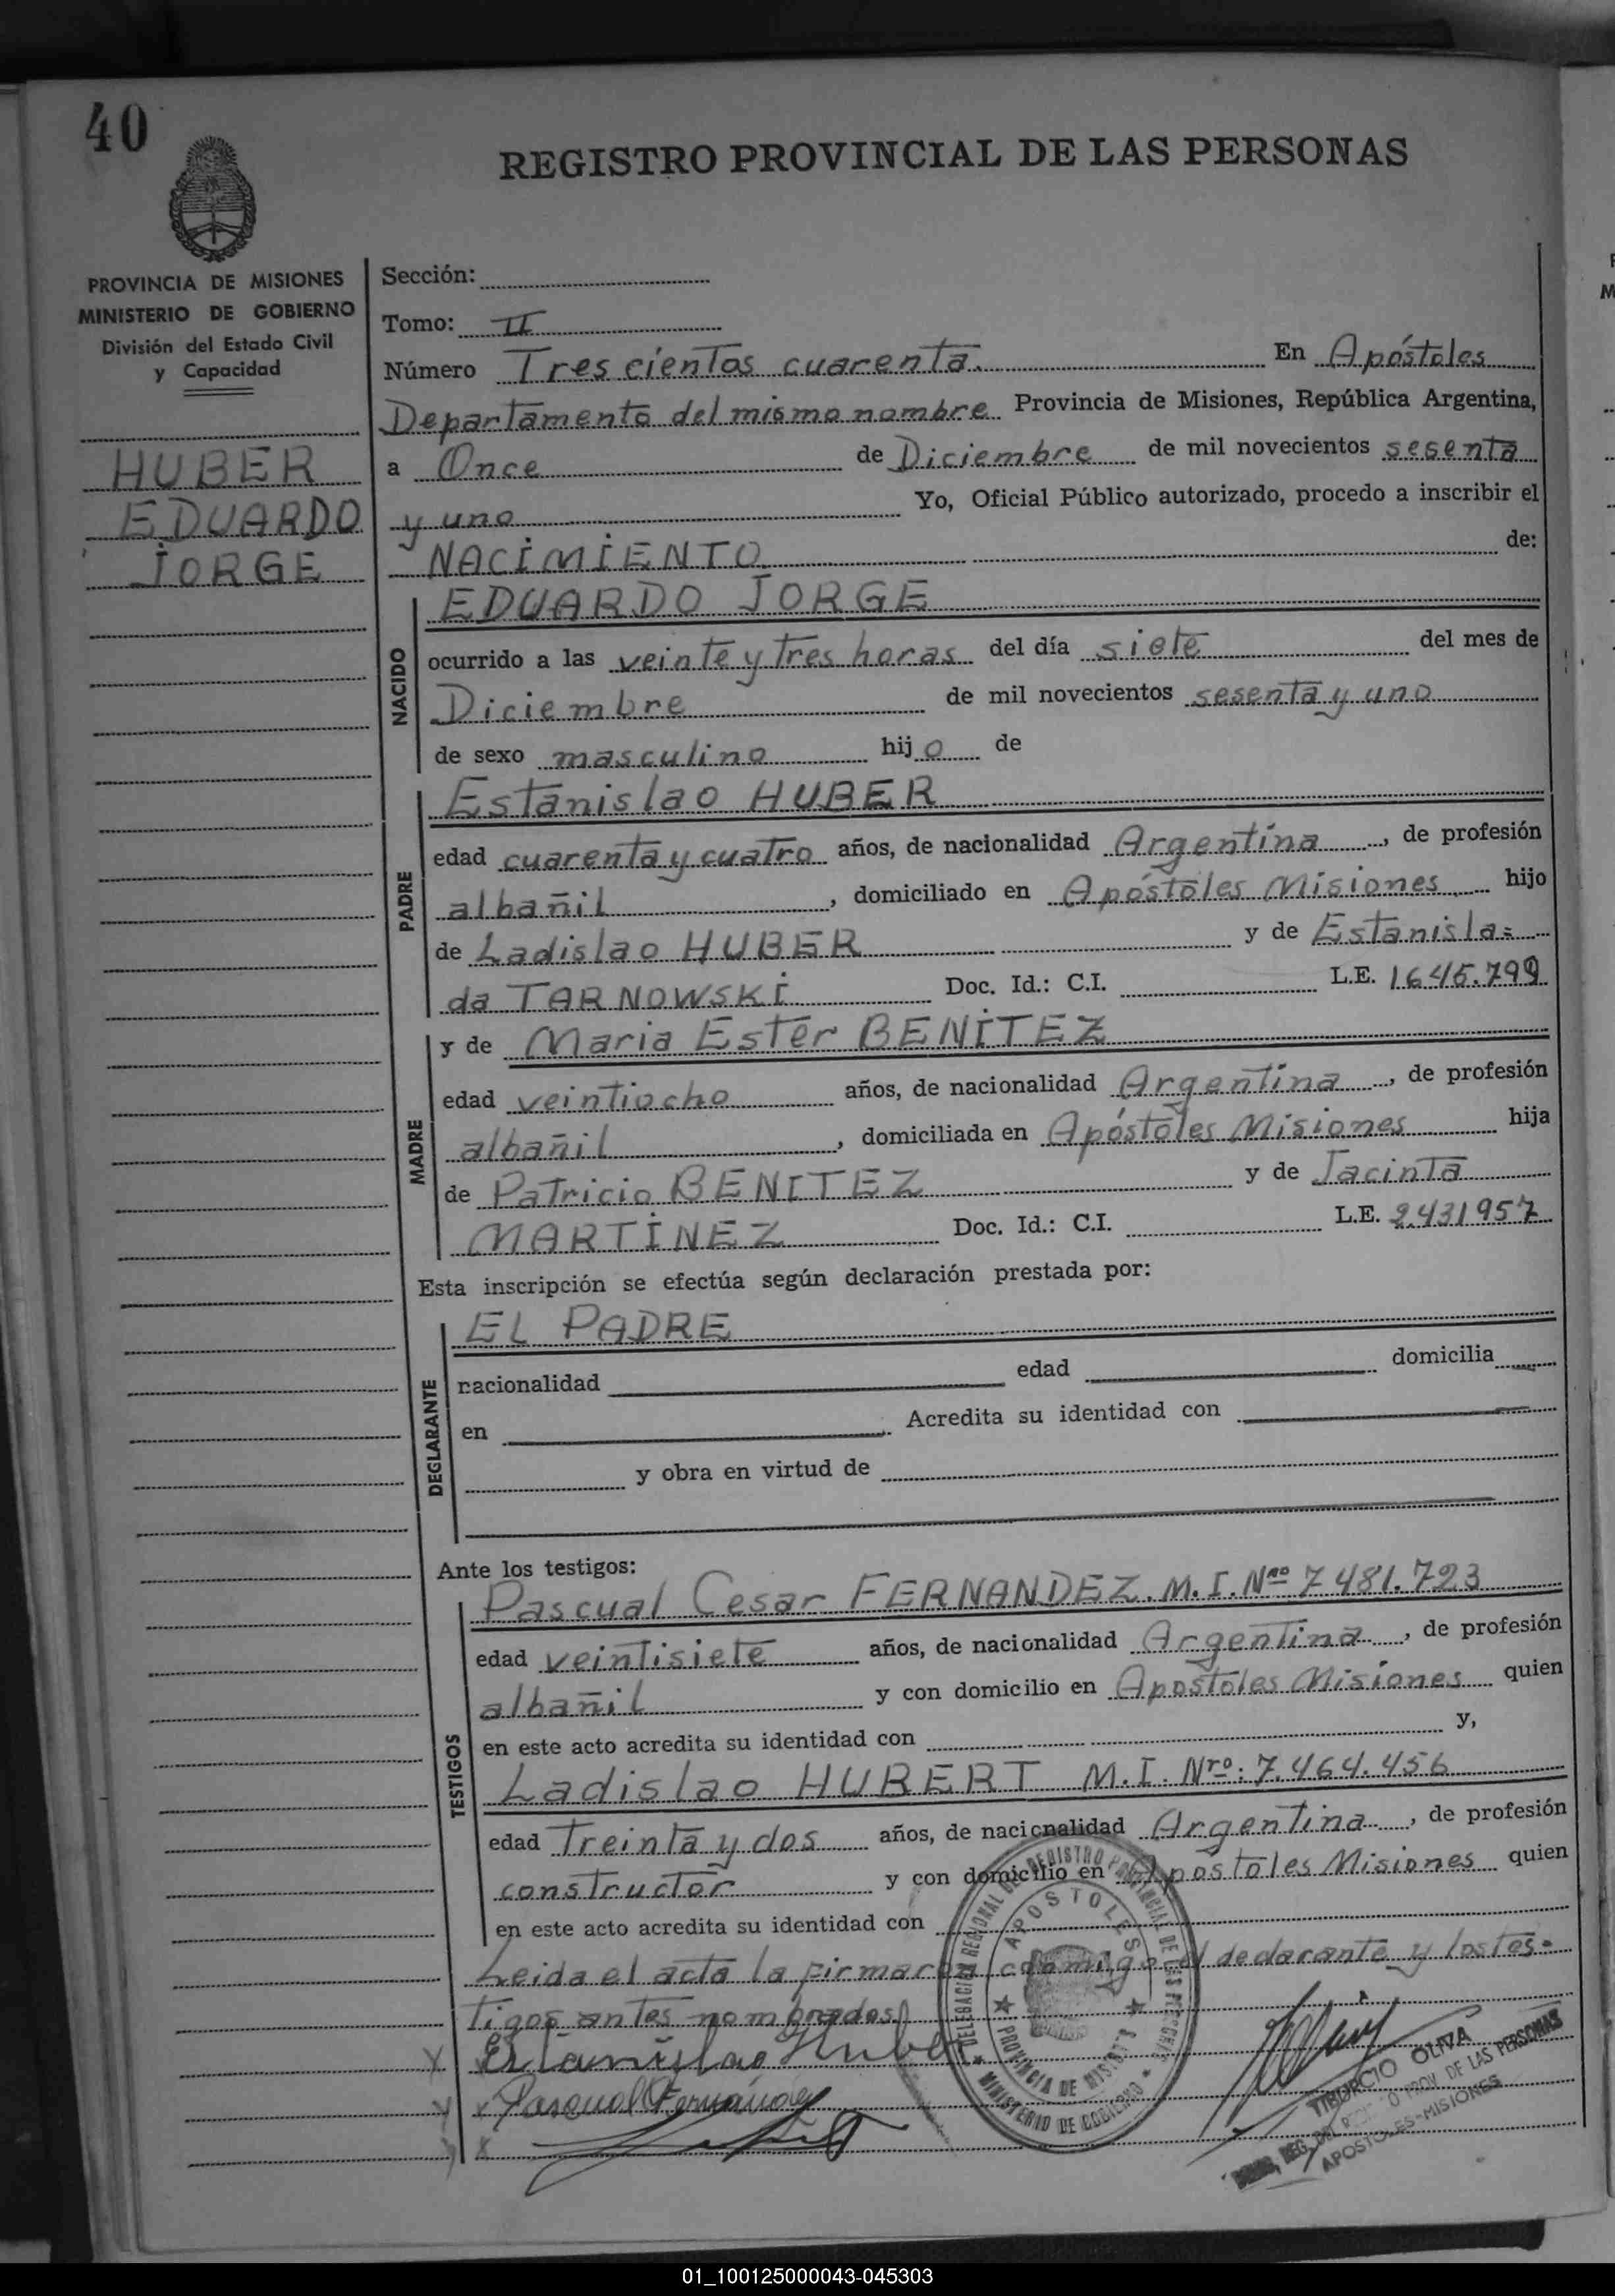 40
REGISTRO PROVINCIAL DE LAS PERSONAS
PROVINCIA DE MISIONES
MINISTERIO DE GOBIERNO
División del Estado Civil
y Capacidad
HUBER
EDUARDO
JORGE
Sección:
Tomo: II
Número Tres cientos cuarenta. En Apóstoles
Departamento del mismo nombre Provincia de Misiones, República Argentina,
a Once de Diciembre de mil novecientos sesenta
y uno Yo, Oficial Público autorizado, procedo a inscribir el
NACIMIENTO de:
NACIDO
EDUARDO JORGE
ocurrido a las veinte y tres horas del día siete del mes de
Diciembre de mil novecientos sesenta y uno
de sexo masculino hijo de
PADRE
Estanislao HUBER
edad cuarenta y cuatro años, de nacionalidad Argentina, de profesión
albañil, domiciliado en Apóstoles Misiones hijo
de Ladislao HUBER y de Estanisla=
da TARNOWSKI Doc. Id.: C.I. L.E. 1645.799
MADRE
y de Maria Ester BENITEZ
edad veintiocho años, de nacionalidad Argentina, de profesión
albañil, domiciliada en Apóstoles Misiones hija
de Patricio BENITEZ y de Jacinta
MARTINEZ Doc. Id.: C.I. L.E. 2.431957
Esta inscripción se efectúa según declaración prestada por:
DEGLARANTE
EL PADRE
nacionalidad edad domicilia
en Acredita su identidad con
y obra en virtud de
Ante los testigos:
TESTIGOS
Pascual Cesar FERNANDEZ. M.I. Nro 7481.723
edad veintisiete años, de nacionalidad Argentina, de profesión
albañil y con domicilio en Apostoles Misiones quien
en este acto acredita su identidad con y,
Ladislao HUBERT M.I. Nro: 7.464.456
edad Treinta y dos años, de nacionalidad Argentina, de profesión
constructor y con domicilio en Apostoles Misiones quien
en este acto acredita su identidad con
Leida el acta la firmaron conmigo el declarante y los tes-
tigos antes nombrados
Estanislao Huber
Pascual Fernández
DELEGACION REGIONAL DE REGISTRO PROVINCIAL DE LAS PERSONAS
APOSTOLES
PROVINCIA DE MISIONES
MINISTERIO DE GOBIERNO
TIBURCIO OLIVA
REG. DEL PROV DE LAS PERSONAS
APOSTOLES-MISIONES
01_100125000043-045303